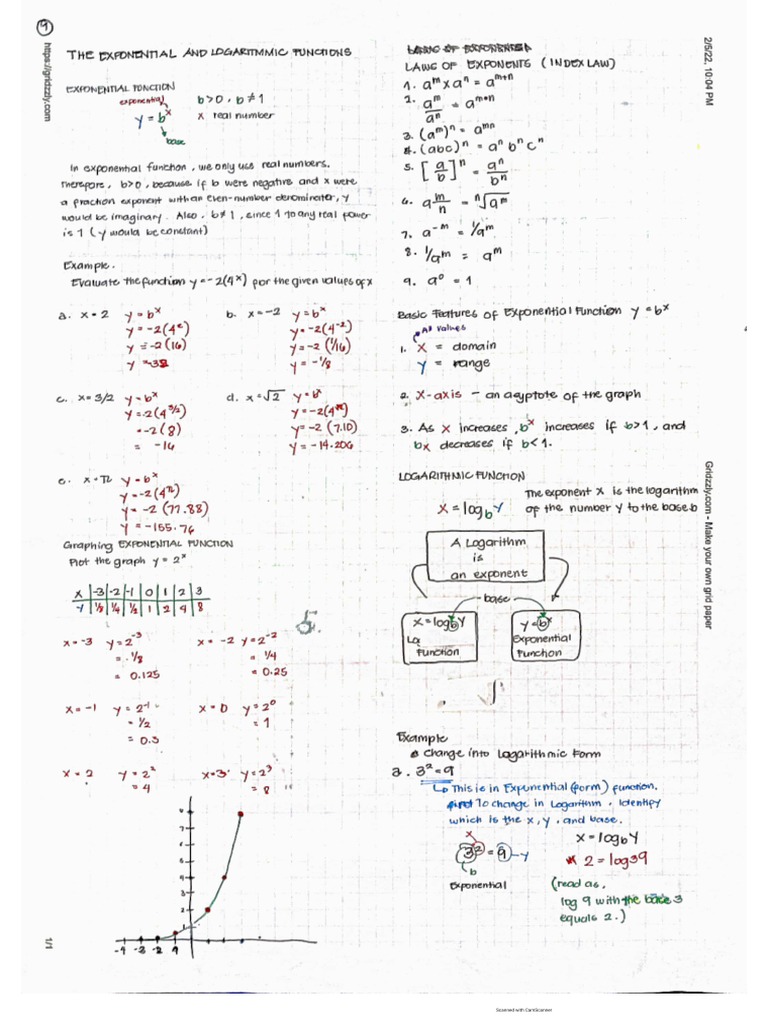 9
https://gridzzly.com
THE EXPONENTIAL AND LOGARITHMIC FUNCTIONS
EXPONENTIAL FUNCTION
exponential
b>0, b≠1
y = b^x
x real number
base
In exponential function, we only use real numbers.
Therefore, b>0, because if b were negative and x were
a fraction exponent with an even-number denominator, y
would be imaginary. Also, b≠1, since 1 to any real power
is 1 (y would be constant)
Example.
Evaluate the function y=-2(4^x) for the given values of x
a. x=2 y=b^x
y=-2(4^2)
y=-2(16)
y=-32
b. x=-2 y=b^x
y=-2(4^-2)
y=-2(1/16)
y=-1/8
c. x=3/2 y=b^x
y=-2(4^3/2)
=-2(8)
= -16
d. x=√2 y=b^x
y=-2(4^√2)
y=-2(7.10)
y=-14.206
e. x=π y=b^x
y=-2(4^π)
y=-2(77.88)
y=-155.76
Graphing EXPONENTIAL FUNCTION
Plot the graph y=2^x
x -3 -2 -1 0 1 2 3
y 1/8 1/4 1/2 1 2 4 8
x=-3 y=2^-3
= 1/8
= 0.125
x=-2 y=2^-2
= 1/4
= 0.25
x=-1 y=2^-1
= 1/2
= 0.5
x=0 y=2^0
= 1
x=2 y=2^2
= 4
x=3 y=2^3
= 8
7
6
5
4
3
2
1
-4 -3 -2
1/1
2/5/22, 10:04 PM
LAWS OF EXPONENTS (INDEX LAW)
1. a^m x a^n = a^m+n
2. a^m/a^n = a^m+n
3. (a^m)^n = a^mn
4. (abc)^n = a^n b^n c^n
5. [a/b]^n = a^n/b^n
6. a^m/n = n√a^m
7. a^-m = 1/a^m
8. 1/a^m = a^m
9. a^0 = 1
Basic Features of Exponential Function y=b^x
All values
1. x = domain
y = range
2. x-axis - an asyptote of the graph
3. As x increases, b^x increases if b>1, and
bx decreases if b<1.
LOGARITHMIC FUNCTION
x = log_b y
The exponent x is the logarithm
of the number y to the base b
A Logarithm
is
an exponent
base
x=log_b y
Lo
Function
y=b^x
Exponential
Function
Example
Change into Logarithmic Form
a. 3^2=9
This is in Exponential (form) function.
To change in Logarithm, Identify
which is the x, y, and base.
x
3^2 = 9 - y
b
Exponential
x=log_b y
2=log_3 9
(read as,
log 9 with the base 3
equals 2.)
Gridzzly.com - Make your own grid paper
Scanned with CamScanner